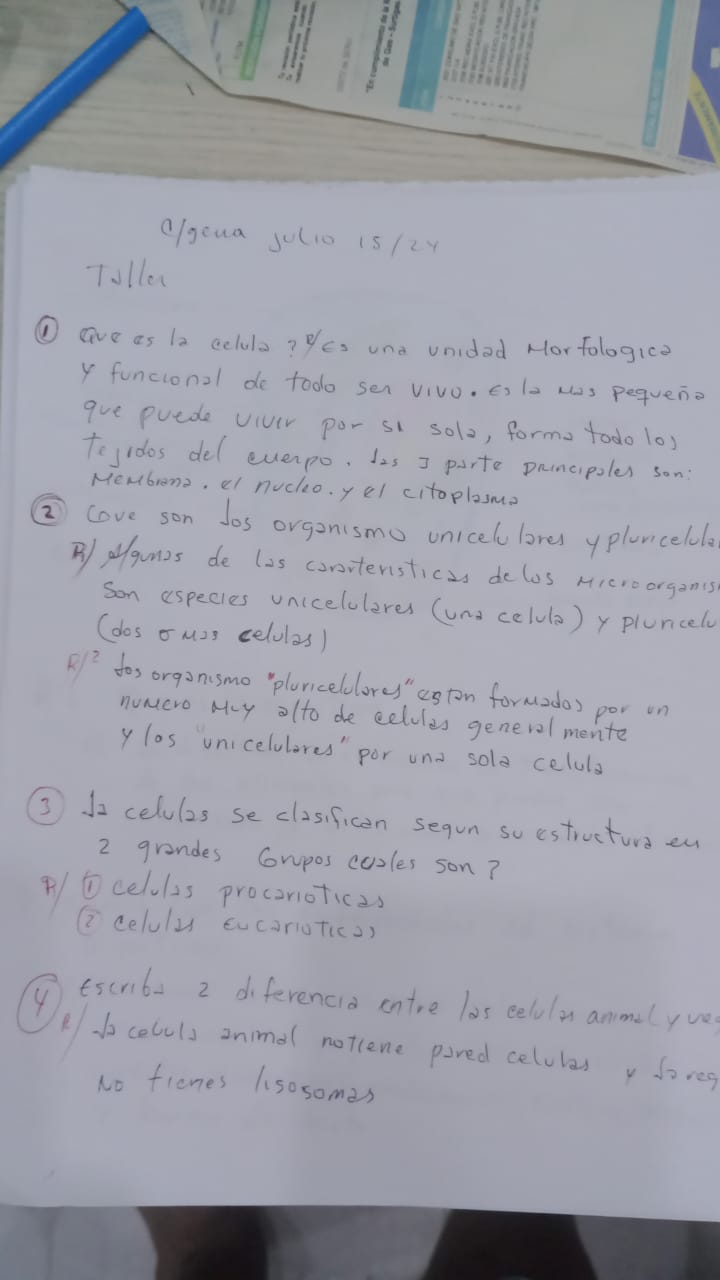 "En cumplimiento de la
de Gas - Surtigas
C/gena Julio 15/24
Taller
① Que es la celula? R/ Es una unidad Morfologica
y funcional de todo ser vivo. Es la mas pequeña
que puede vivir por si sola, forma todo los
Tejidos del cuerpo. Las 3 parte principales son:
Membrana. el nucleo. y el citoplasma
② Cove son los organismo unicelulares y pluricelula
R/ Algunas de las caracteristicas de los microorganis
Son especies unicelulares (una celula) y pluricelu
(dos o mas celulas)
R/2 Los organismo "pluricelulares" estan formados por un
numero muy alto de celulas generalmente
y los "unicelulares" por una sola celula
③ La celulas se clasifican segun su estructura en
2 grandes Grupos cuales son?
R/ ① celulas procarioticas
② celulas Eucarioticas
④ Escriba 2 diferencia entre las celulas animal y veg
R/ La celula animal no tiene pared celulas y la veg
No tienes lisosomas